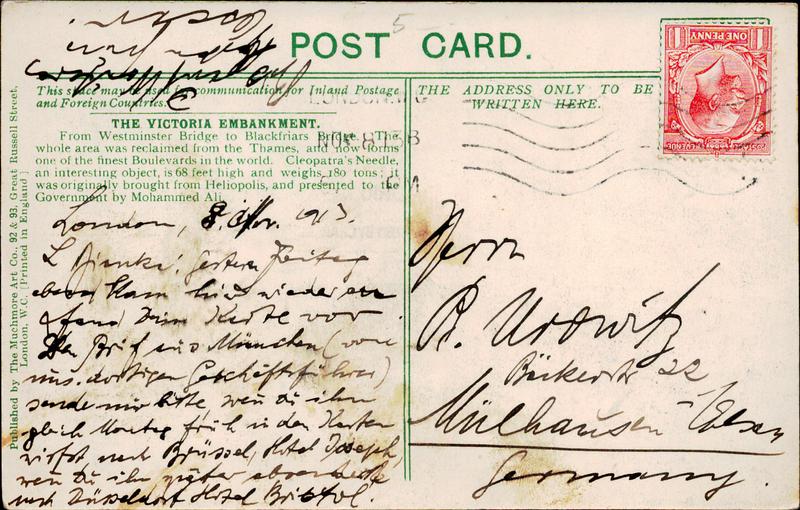 POST CARD.
This space may be used for communication for Inland Postage
and Foreign Countries.
THE ADDRESS ONLY TO BE
WRITTEN HERE.
THE VICTORIA EMBANKMENT.
From Westminster Bridge to Blackfriars Bridge. The
whole area was reclaimed from the Thames, and now forms
one of the finest Boulevards in the world. Cleopatra's Needle,
an interesting object, is 68 feet high and weighs 180 tons; it
was originally brought from Heliopolis, and presented to the
Government by Mohammed Ali.
Published by The Muchmore Art Co., 92 & 93, Great Russell Street,
London, W.C. [Printed in England]
ONE PENNY
LONDON
London, 8. Nov. 1913.
L Gestern Freitag
abend kam hier wieder an
& fand Deine Karte vor.
Den Brief aus München (von
uns. dortigen Geschäftsführer)
sende mir bitte, wen Du ihn
gleich Montag früh in den Kasten
wirfst nach Brüssel, Hotel Joseph,
wen Du ihn später absendest
nach Düsseldorf Hotel Bristol.
Herrn
B. Urowitz
Bäckerstr 22
Mülhausen Elsass
Germany.